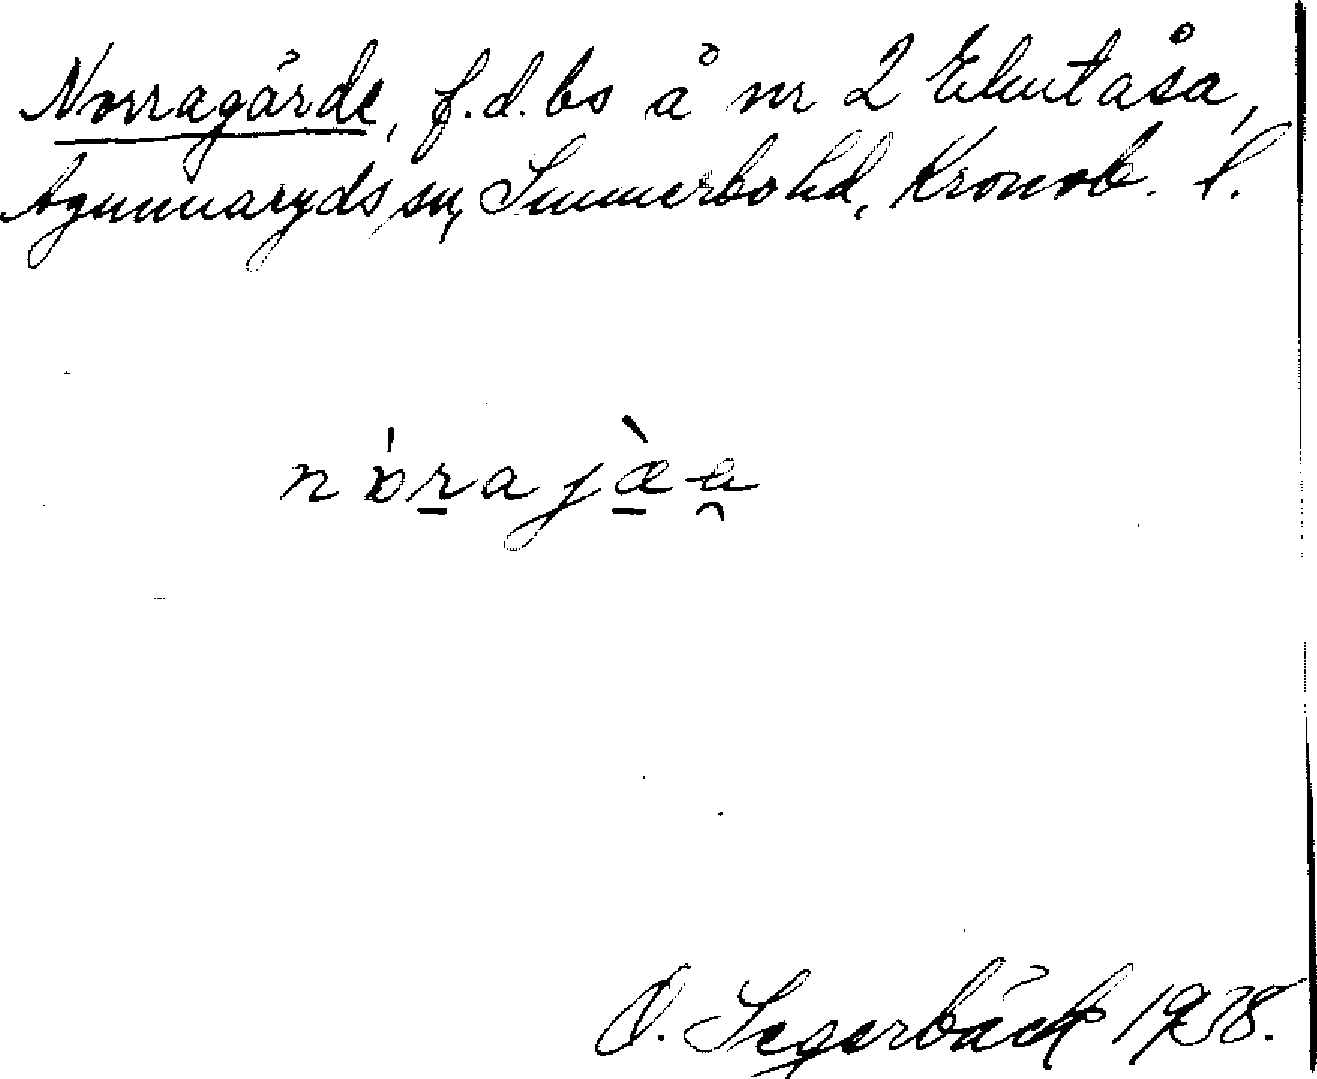 Norragärde, f.d. bs å nr 2 Ekutåsa,
Agunnaryds sn, Sunnerbo hd, Kronob. l.
O. Segerbäck 1938.